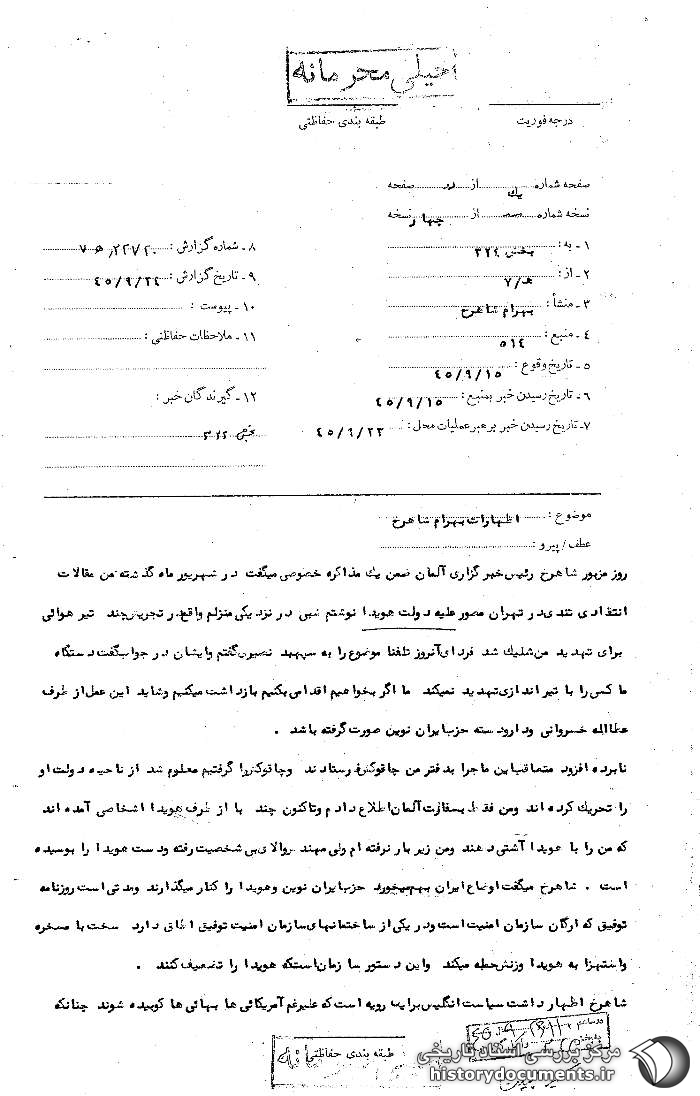 خیلی محرمانه
درجه فوریت
طبقه بندی حفاظتی
صفحه شماره یك از دو صفحه
نسخه شماره از چهار نسخه
۱ـ به: بخش ۳۲۹
۲ـ از: ۷/ه
۳ـ منشأ: بهرام شاهرخ
۴ـ منبع: ۵۱۴
۵ـ تاریخ وقوع: ۴۵/۹/۱۵
۶ـ تاریخ رسیدن خبر بمنبع: ۴۵/۹/۱۵
۷ـ تاریخ رسیدن خبر برهبر عملیات محل: ۴۵/۹/۲۳
۸ـ شماره گزارش: ۲۲۷۲۰/ه۷
۹ـ تاریخ گزارش: ۴۵/۹/۲۴
۱۰ـ پیوست:
۱۱ـ ملاحظات حفاظتی:
۱۲ـ گیرندگان خبر:
بخش ۳۲۲
موضوع: اظهارات بهرام شاهرخ
عطف/پیرو:
روز مزبور شاهرخ رئیس خبرگزاری آلمان ضمن یك مذاكره خصوصی میگفت در شهریور ماه گذشته من مقالات
انتقادی تندی در تهران مصور علیه دولت هویدا نوشتم شبی در نزدیكی منزلم واقع در تجریش چند تیر هوائی
برای تهدید من شلیك شد فردای آنروز تلفنا موضوع را به سپهبد نصیری گفتم و ایشان در جواب گفت دستگاه
ما كسی را با تیراندازی تهدید نمیكند ما اگر بخواهیم اقدامی بكنیم بازداشت میكنیم و شاید این عمل از طرف
عطااله خسروانی و دارودسته حزب ایران نوین صورت گرفته باشد .
نامبرده افزود متعاقب این ماجرا بدفتر من چاقوكش فرستادند و چاقوكش را گرفتیم معلوم شد از ناحیه دولت او
را تحریك كرده اند و من فقط بسفارت آلمان اطلاع دادم و تاكنون چند بار از طرف هویدا اشخاصی آمده اند
كه من را با هویدا آشتی دهند و من زیر بار نرفته ام ولی مهندس والا ی بی شخصیت رفته و دست هویدا را بوسیده
است . شاهرخ میگفت اوضاع ایران بهم میخورد حزب ایران نوین و هویدا را كنار میگذارند و مدتی است روزنامه
توفیق كه ارگان سازمان امنیت است و در یكی از ساختمانهای سازمان امنیت توفیق اطاق دارد سخت با مسخره
و استهزا به هویدا و زنش حمله میكند و این دستور سازمان است كه هویدا را تضعیف كنند .
شاهرخ اظهار داشت سیاست انگلیس براین رویه است كه علیرغم آمریكائی ها بهائی ها كوبیده شوند چنانكه
طبقه بندی حفاظتی
مرکز بررسی اسناد تاریخی
historydocuments.ir